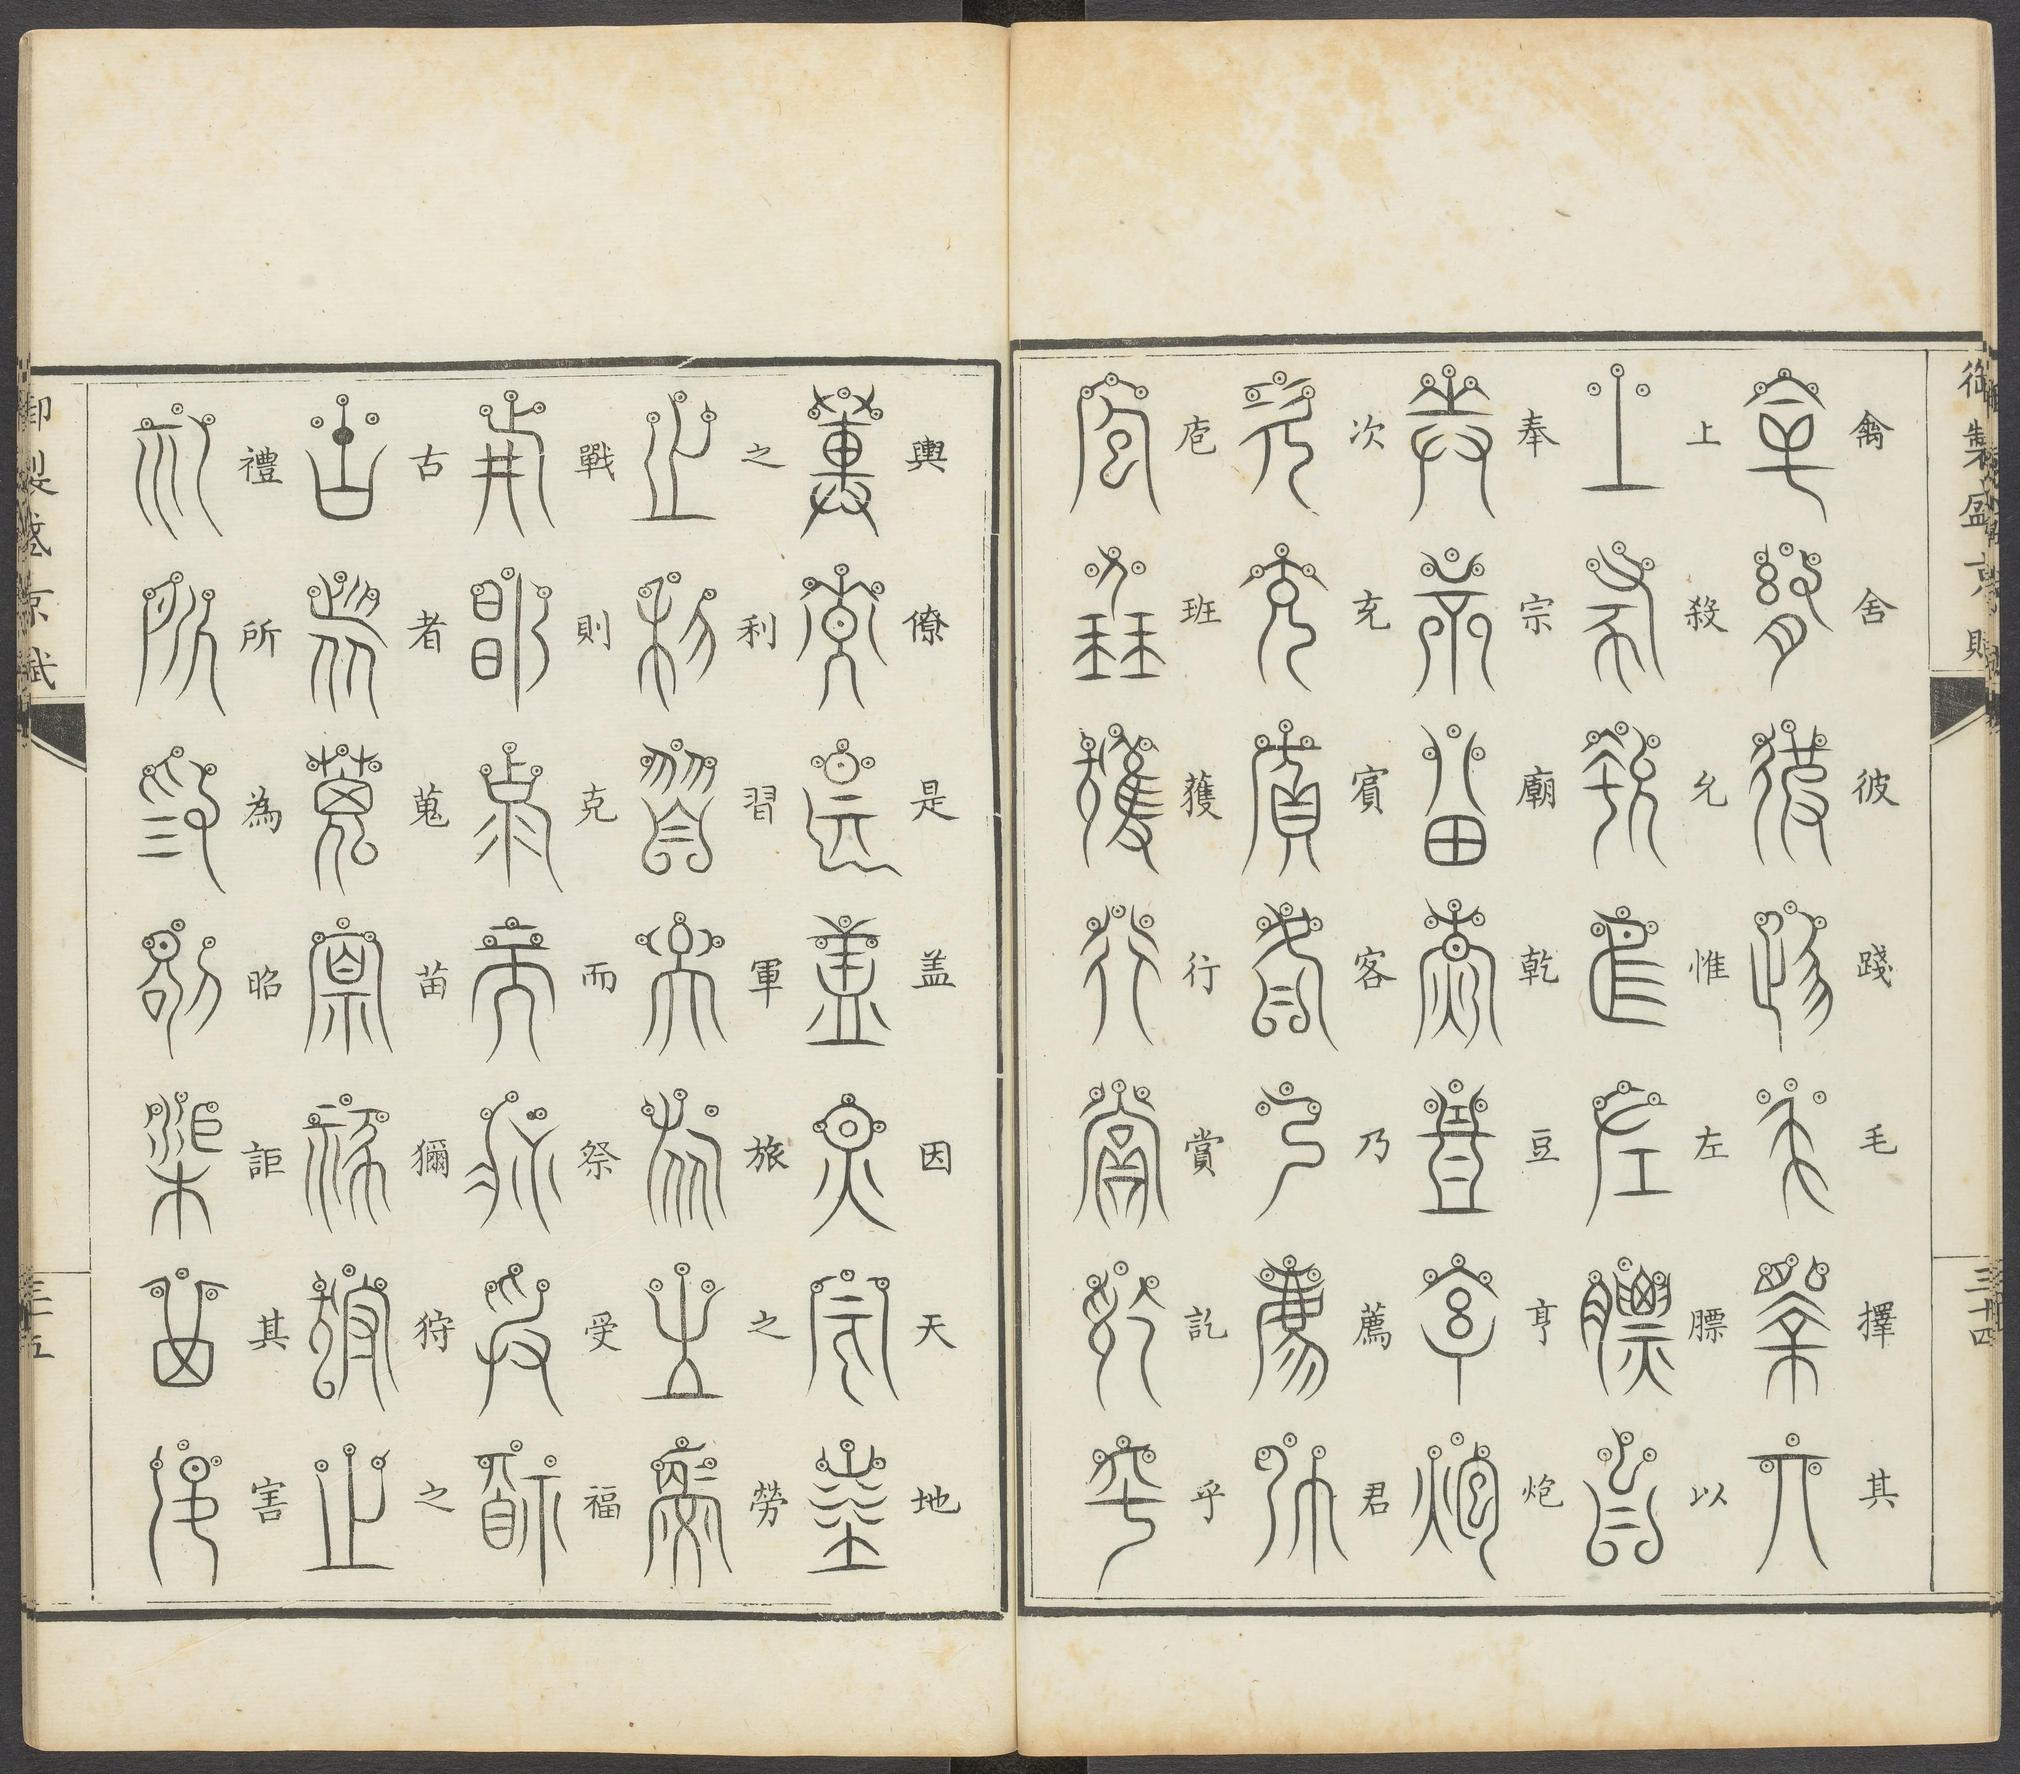 御製盛京賦
三十四
禽舍彼踐毛擇其
上殺允惟左膘以
奉宗廟乾豆亨炮
次充賓客乃薦君
庖班獲行賞訖乎
輿僚是蓋因天地
之利習軍旅之勞
戰則克而祭受福
古者蒐苗獮狩之
禮所為昭詎其害
御製盛京賦
三十五